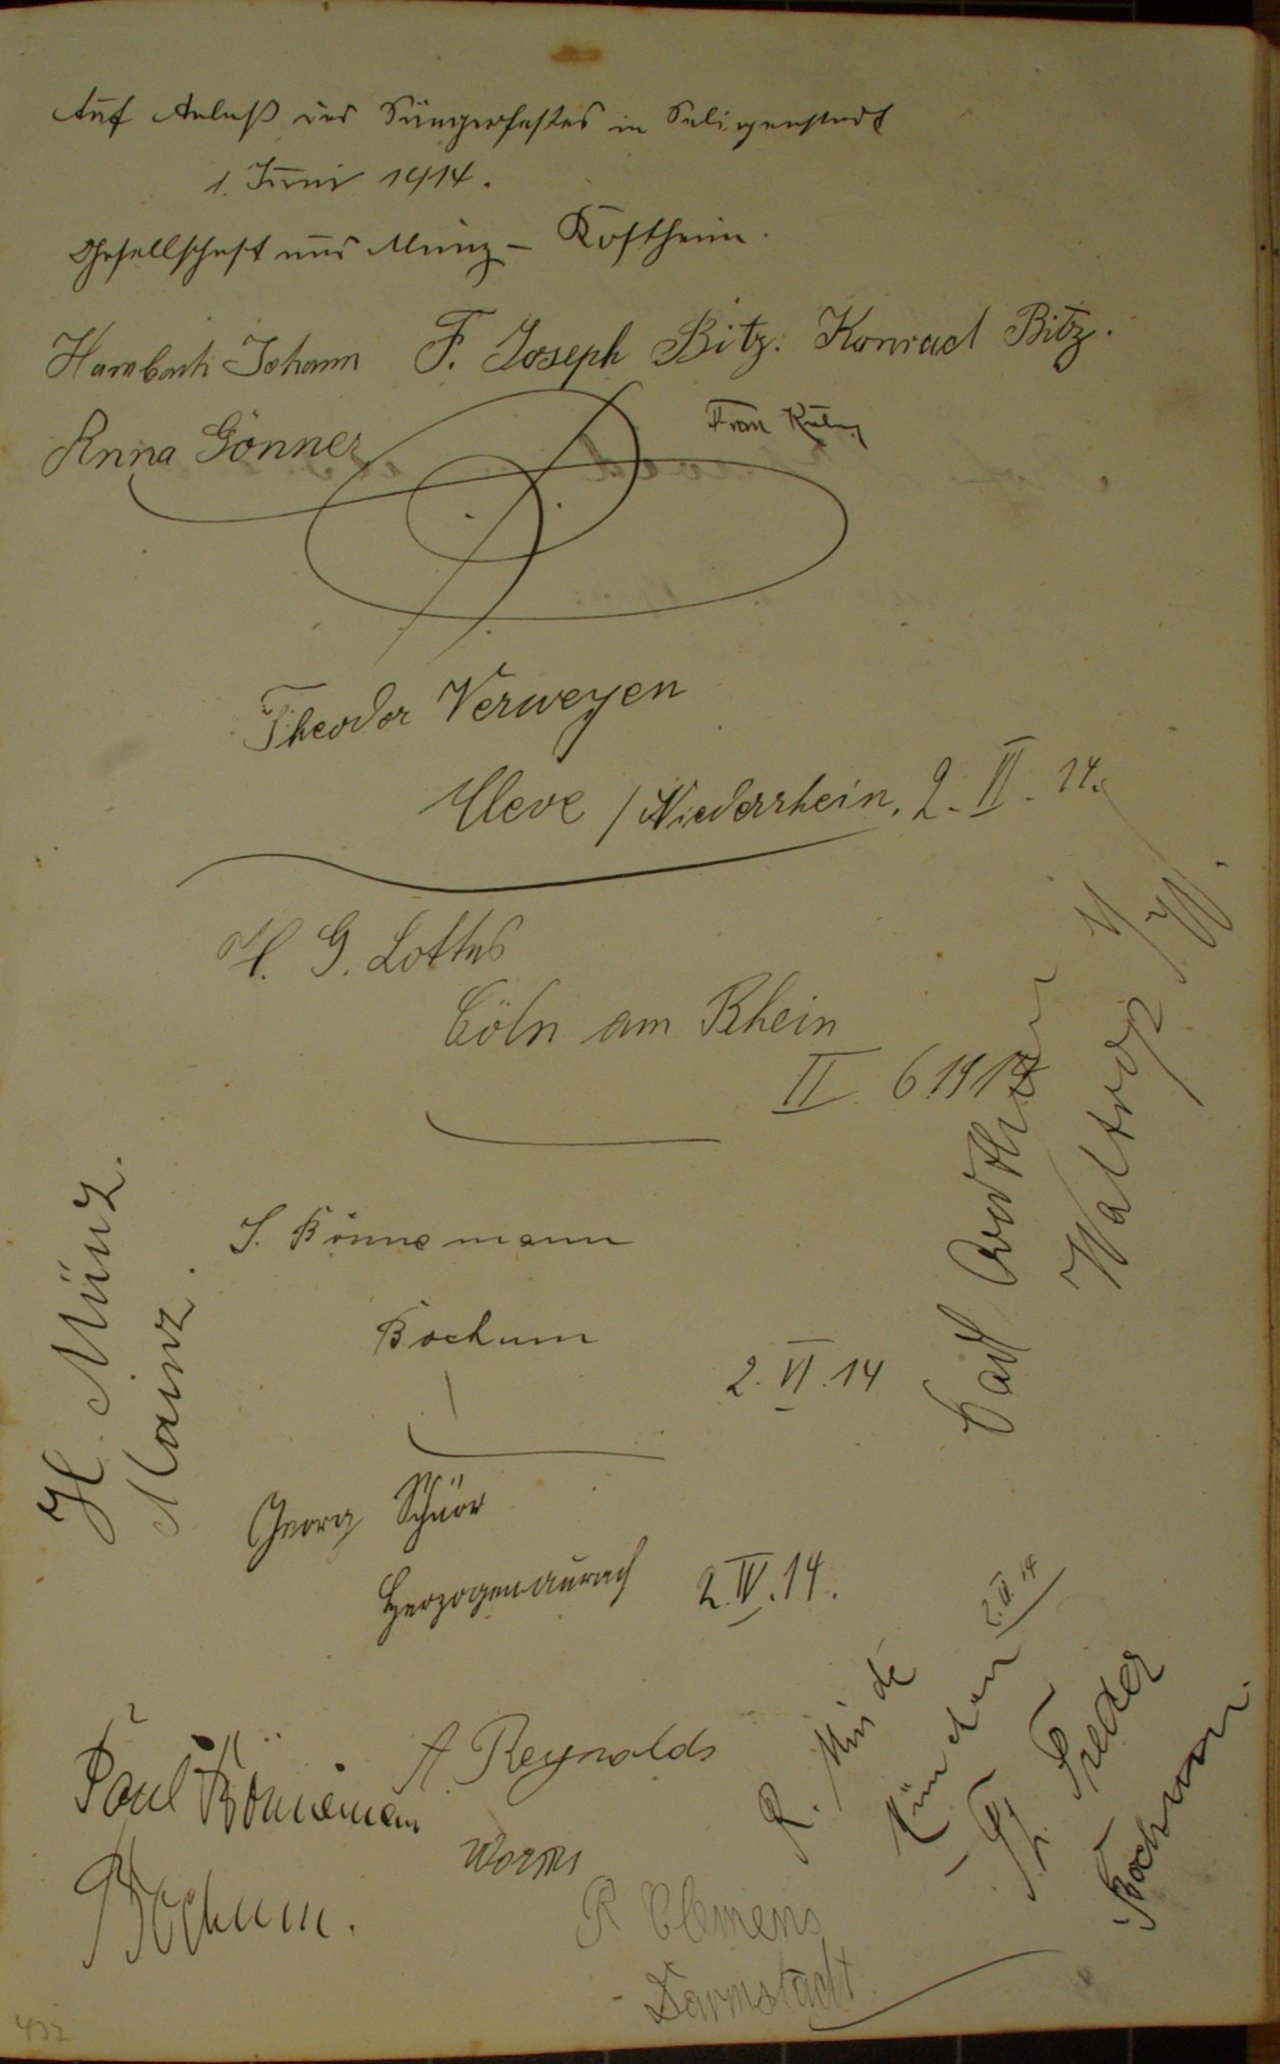 Auf Anlaß des Sängerfestes in Seligenstadt
1. Juni 1914.
Gesellschaft aus Mainz - Kostheim.
Hambach Johann F. Joseph Bitz. Konrad Bitz.
Anna Gönner Frau
Theodor Verweyen
Cleve / Niederrhein, 2. VI. 14.
H. G. Lottes
Cöln am Rhein
II 6 1914
Carl
Waltrop i/W.
H. Münz.
Mainz.
J. Bönnemann
Bochum
2. VI. 14
Georg Schürr
Herzogenaurach 2. IV. 14.
Paul Bönnemann
Bochum.
A. Reynolds
Worms
R. Minde
München 2. VI. 14
Th. Freder
Bochum.
R Clemens
Darmstadt